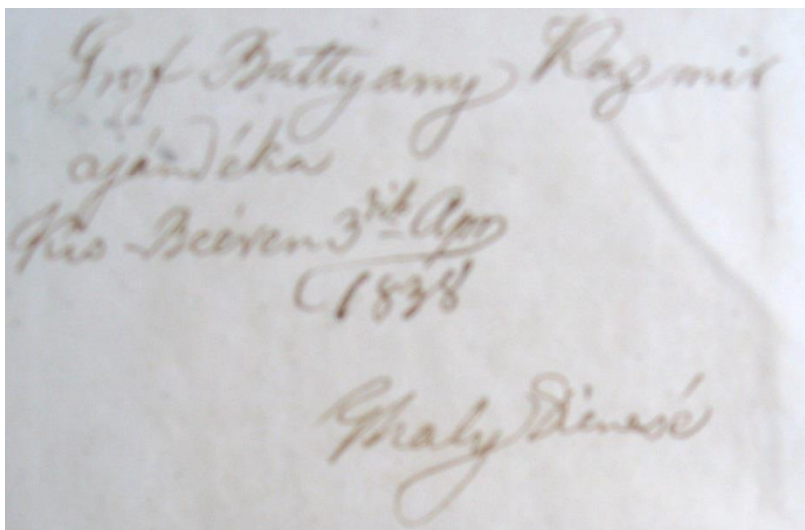 Gróf Battyany Kazmir
ajándéka
Kis Beéren 3dik Apr
1838
Ghaly Dienesé